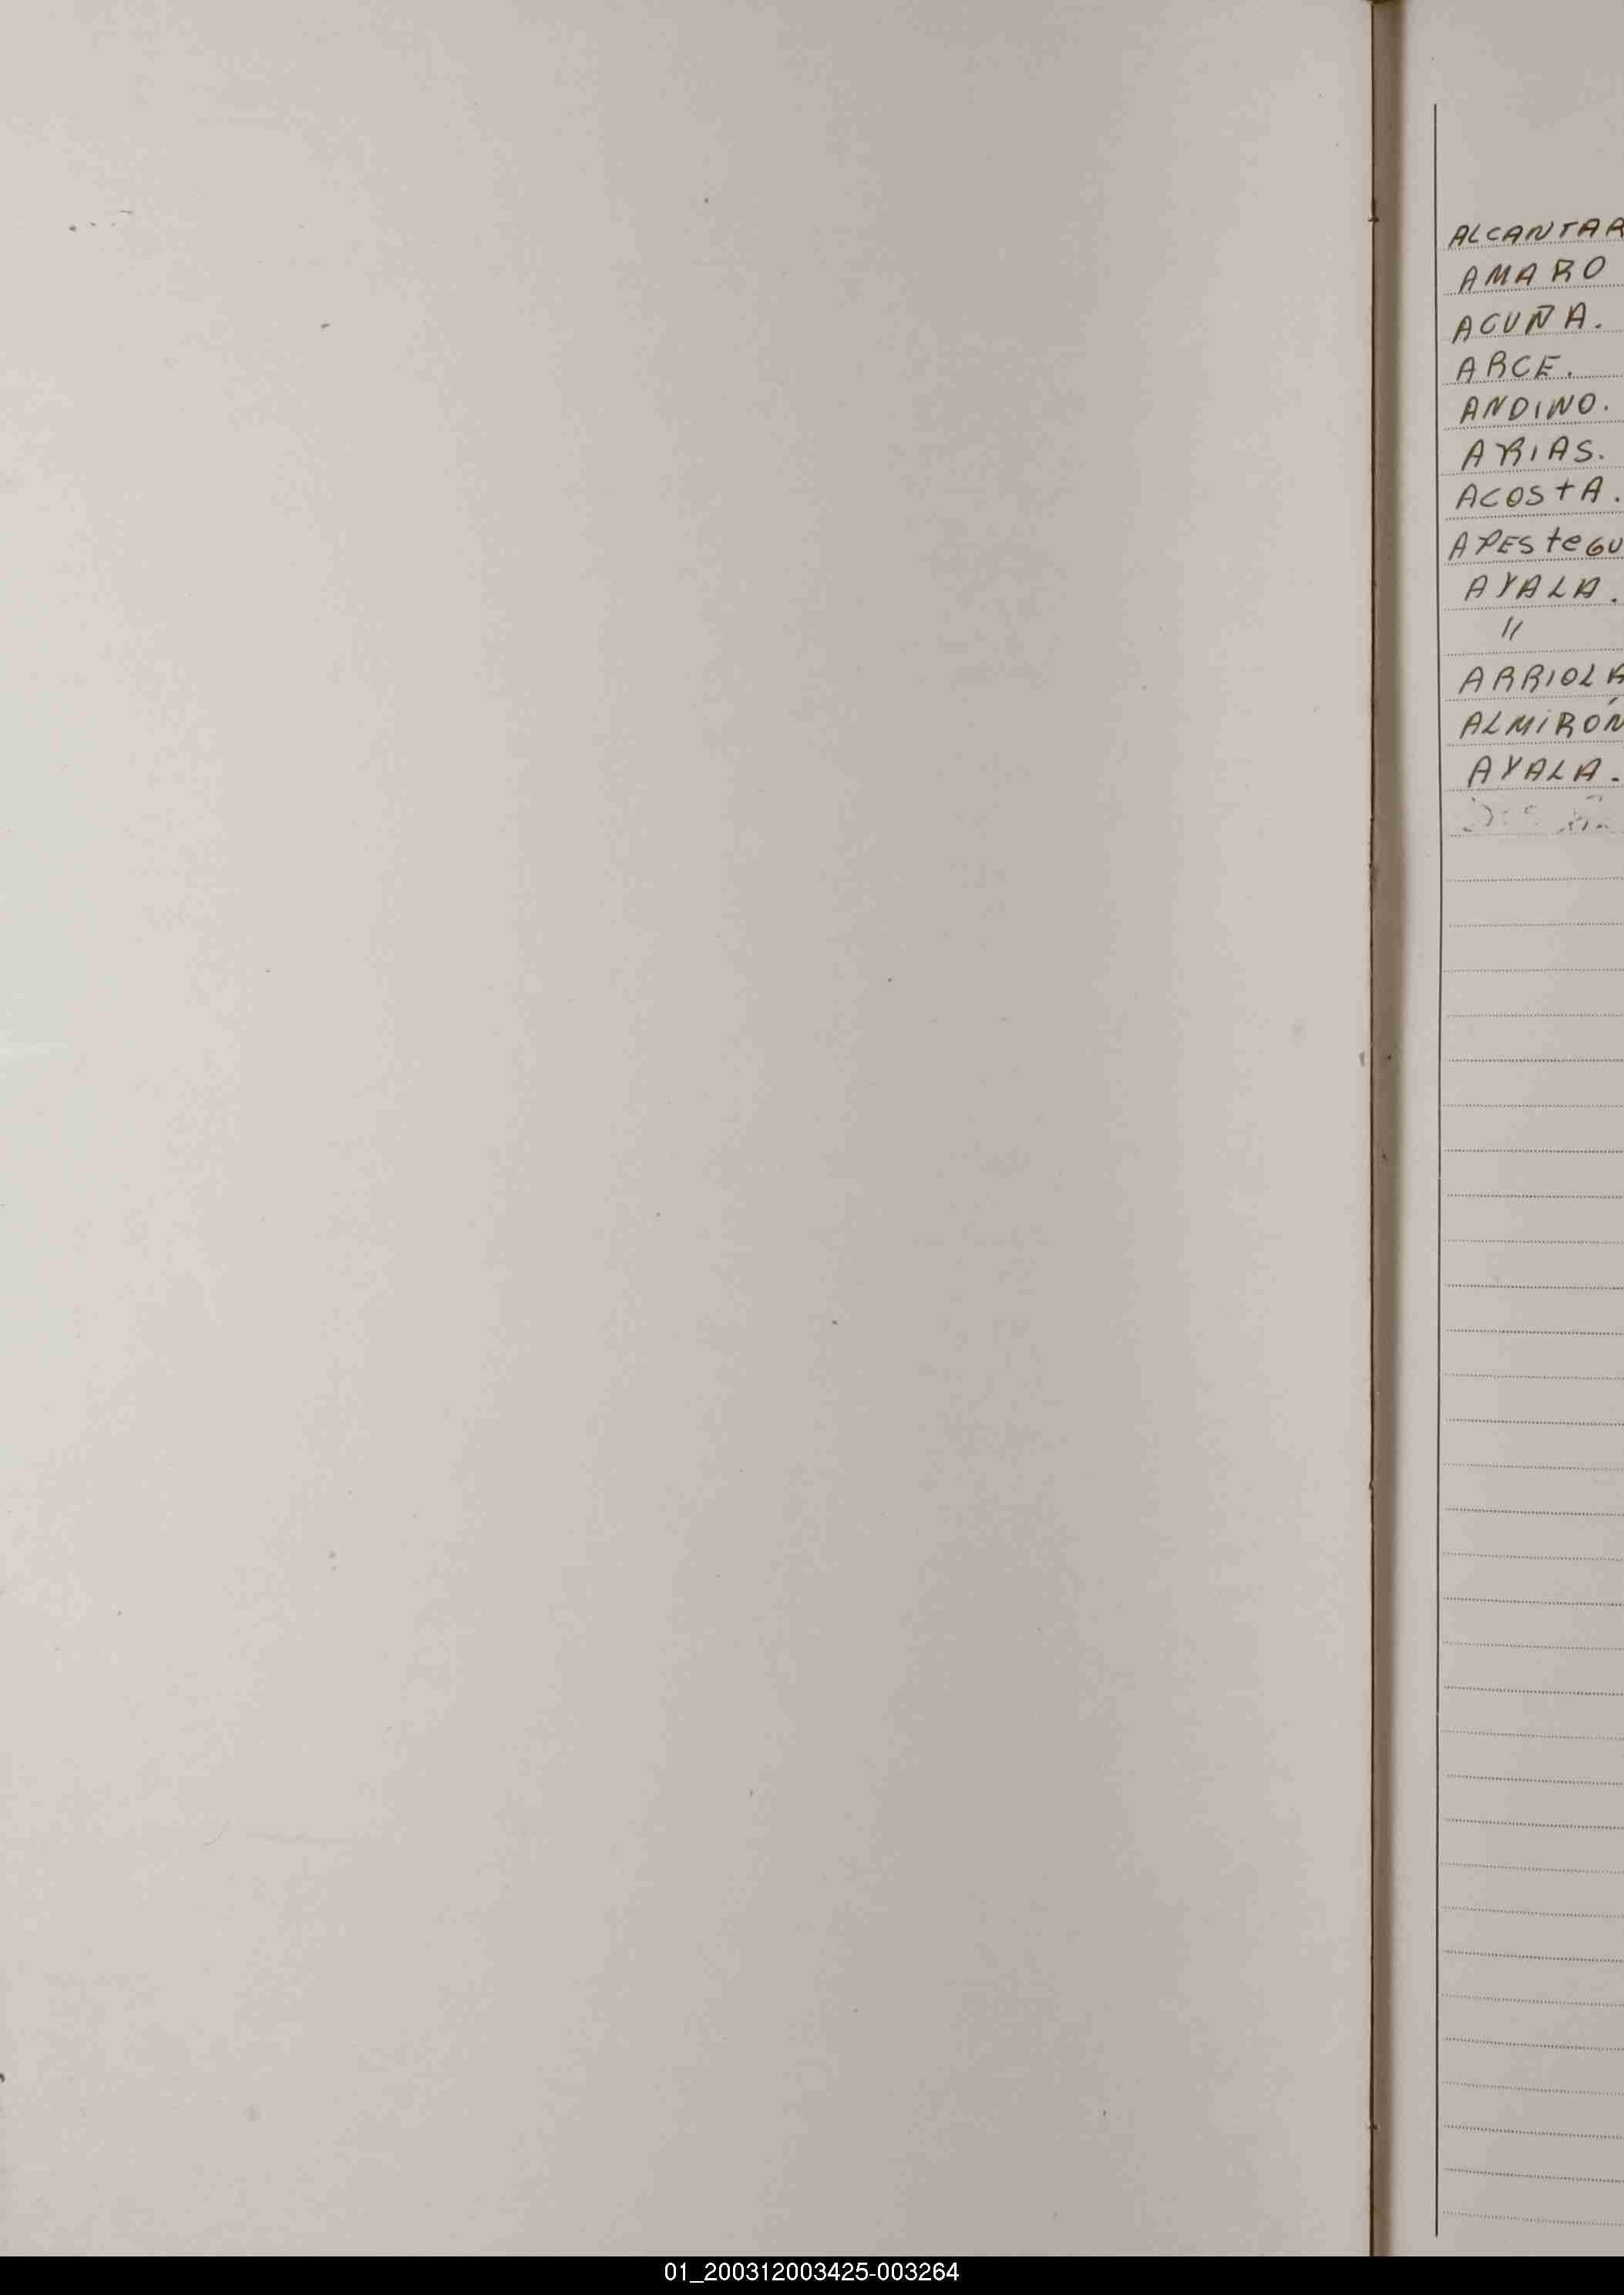 ALCANTAR
AMARO
ACUÑA.
ARCE.
ANDINO.
ARIAS.
ACOSTA.
APESteGU
AYALA.
"
ARRIOLA
ALMiRÓN
AYALA.
01_200312003425-003264